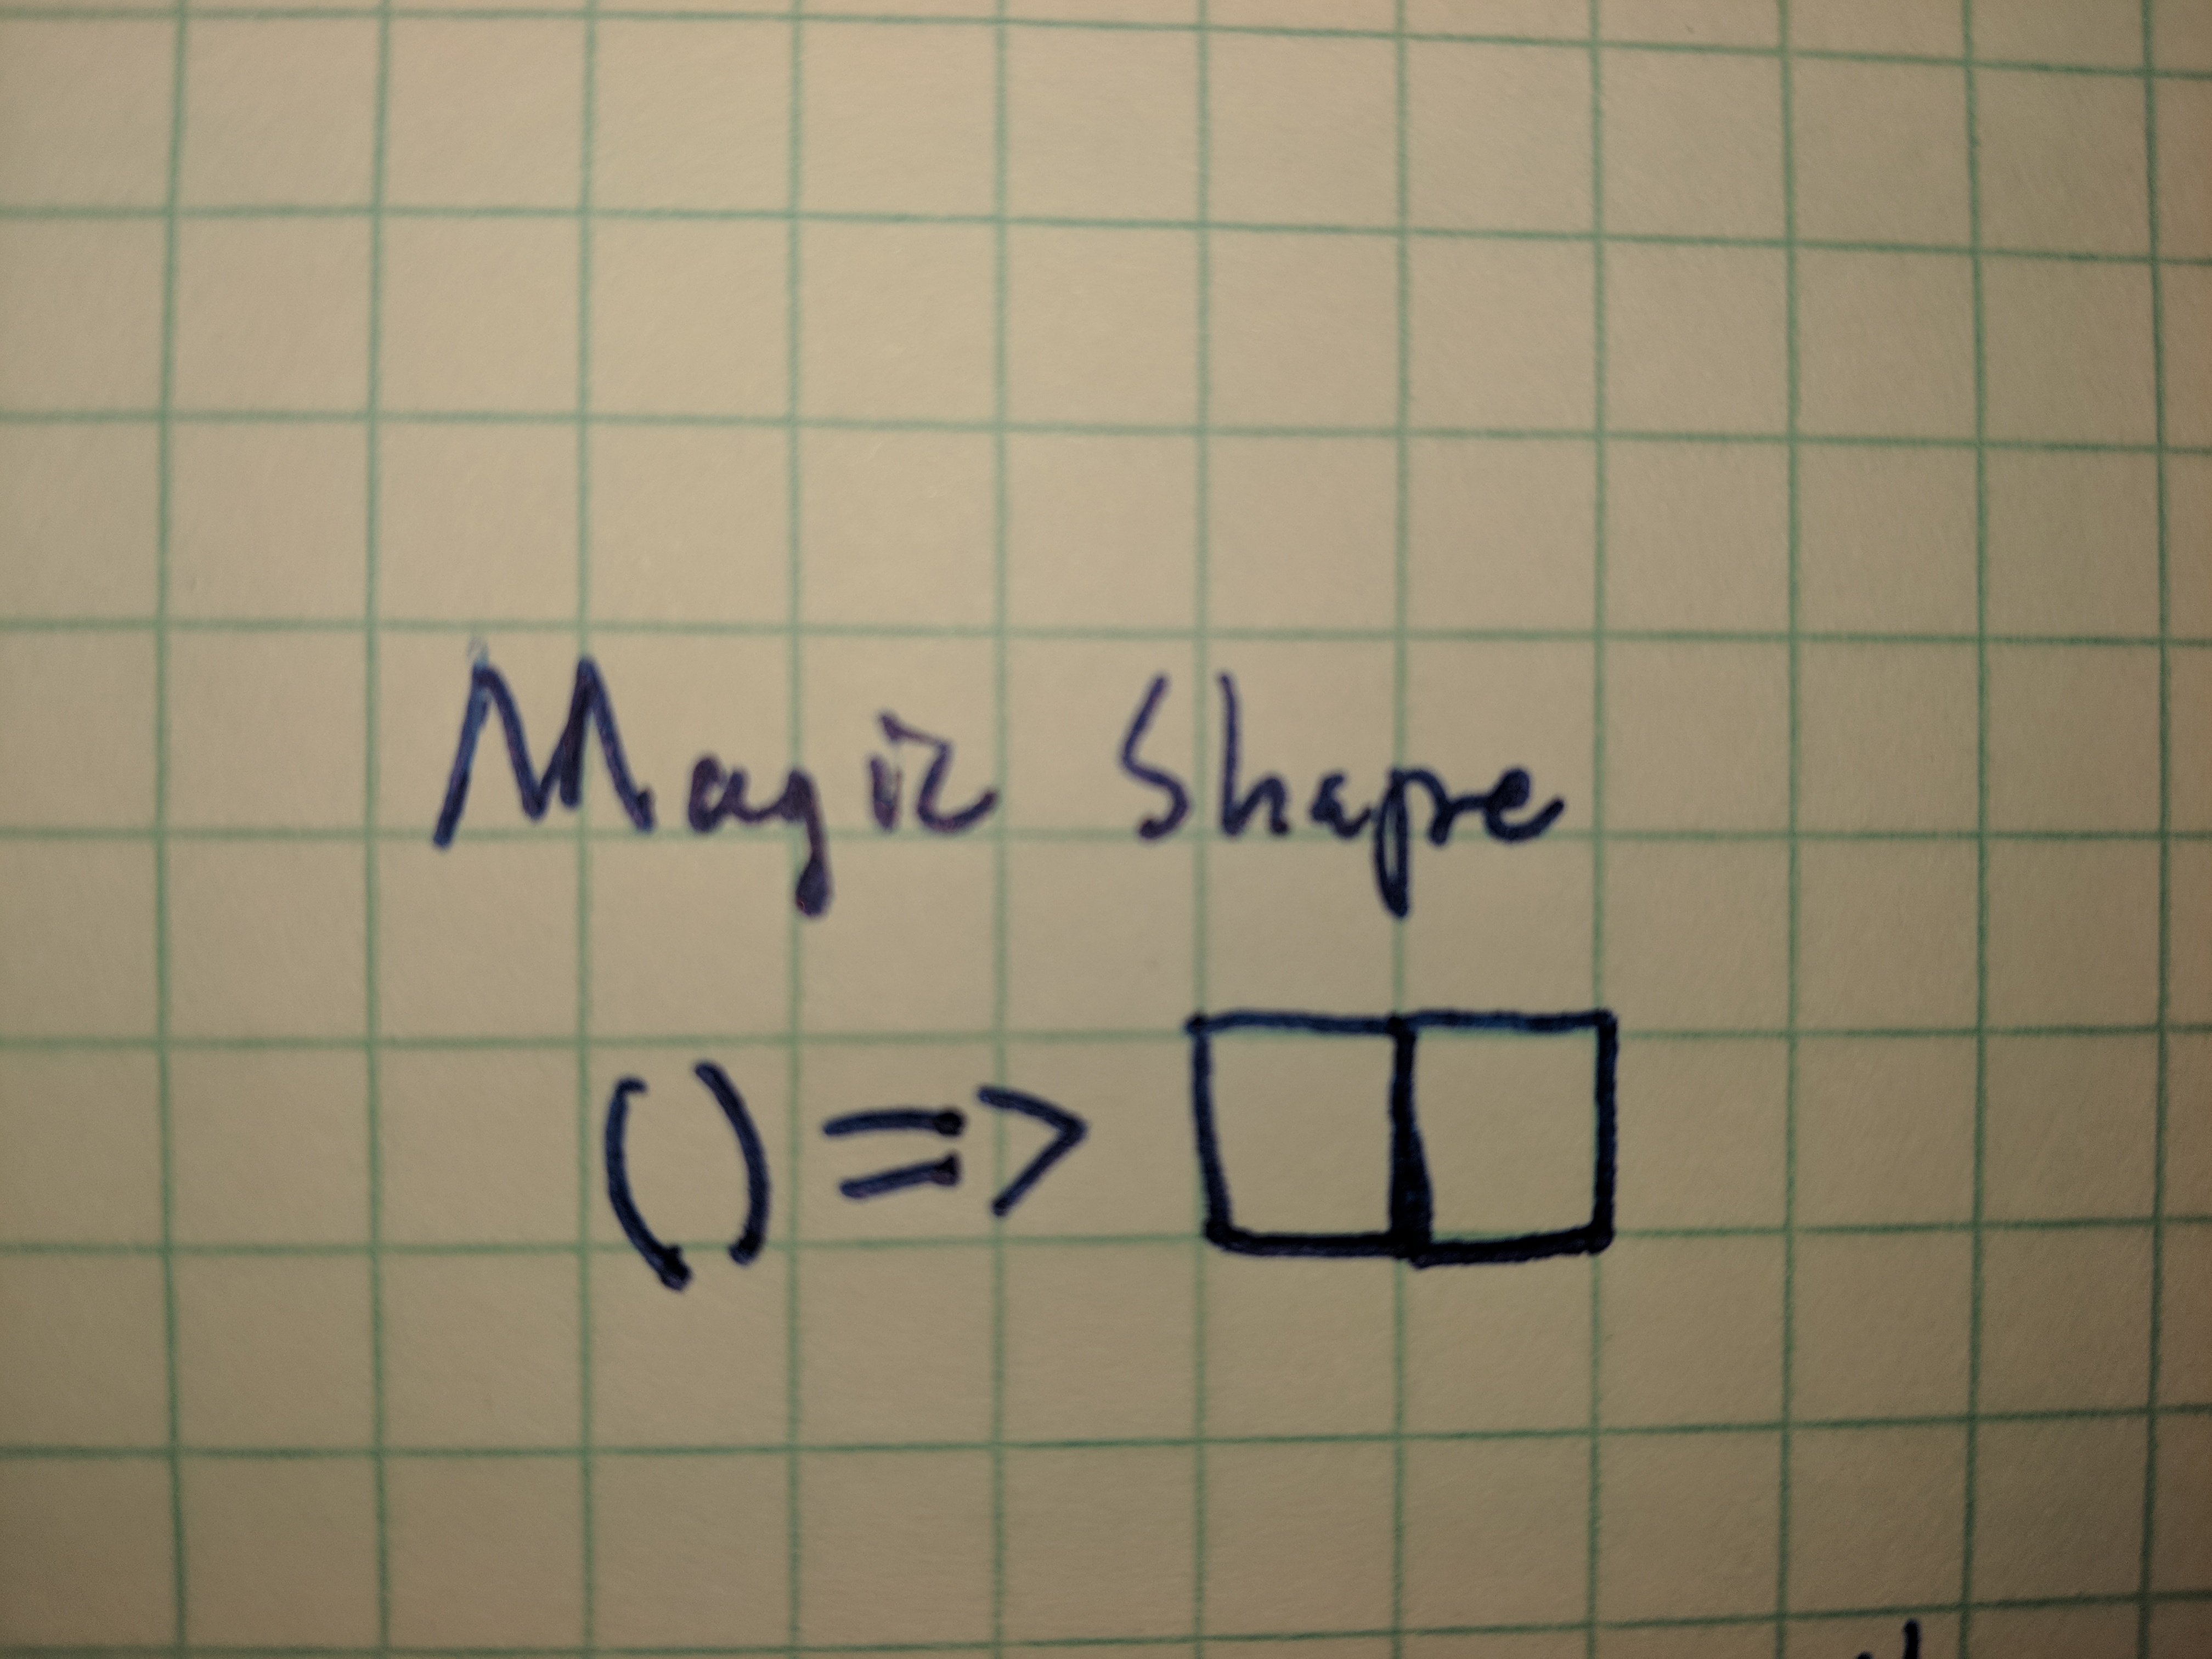 Magic Shape
() =>